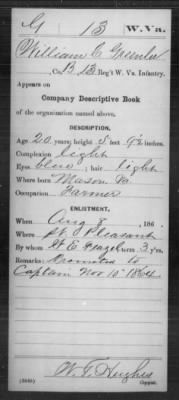 G 13 W.Va.
William C Greenlee
Co. B, 13 Reg't W. Va. Infantry.
Appears on
Company Descriptive Book
of the organization named above.
DESCRIPTION.
Age 20 years; height 5 feet 9½ inches.
Complexion light
Eyes blue ; hair light
Where born Mason Va.
Occupation Farmer
ENLISTMENT.
When Aug 8 , 186 .
Where Pt. Pleasant
By whom W E Feazel ; term 3 y'rs.
Remarks: Promoted to
Captain Nov 10" 1864
W. T. Hughes
Copyist.